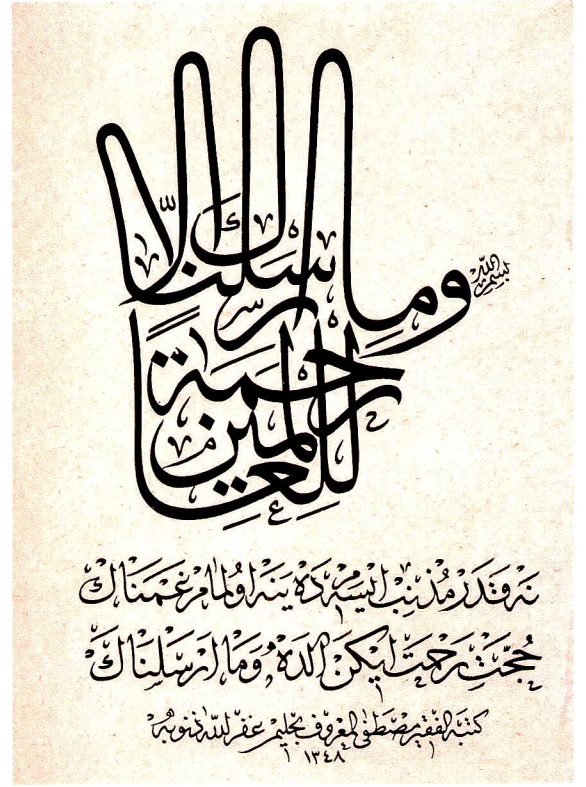 بسم الله
وما أرسلناك إلا
رحمة للعالمين
نه قدر مذنب ايسه م ده ينه اولمام غمناك
حجت رحمت ايكن الده وما ارسلناك
كتبه الفقير مصطفى المعروف بحليم غفر الله ذنوبه
١٣٤٨